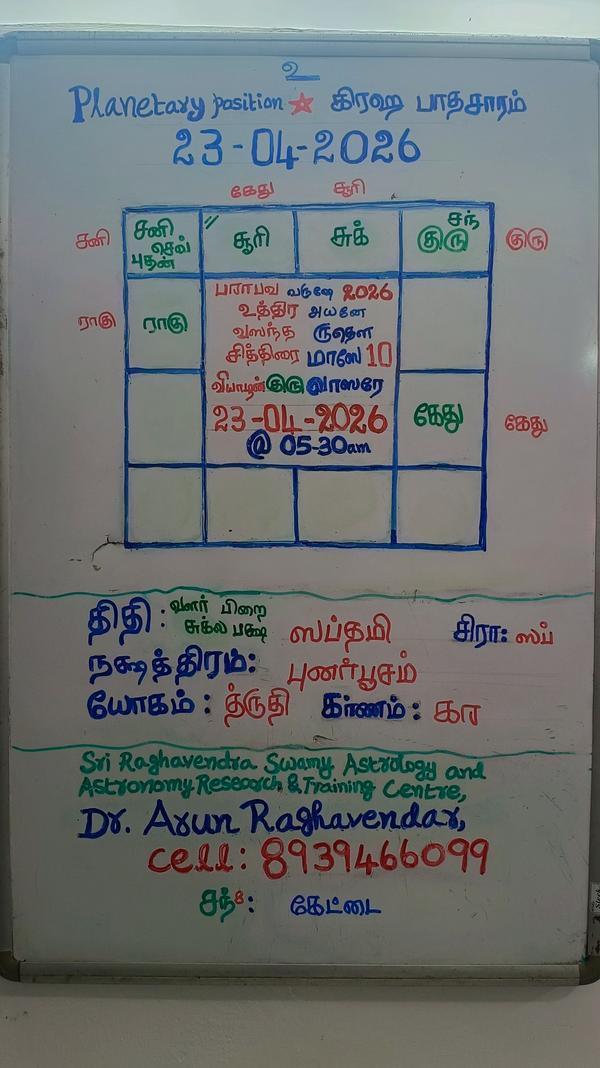 உ
Planetary position கிரஹ பாதசாரம்
23-04-2026
கேது சூரி
சனி சனி செவ் புதன் சூரி சுக் சந் குரு குரு
ராகு ராகு
கேது கேது
பராபவ வருஷே 2026
உத்திர அயனே
வஸந்த ருதௌ
சித்திரை மாஸே 10
வியாழன் குரு வாஸரே
23-04-2026
@ 05-30am
திதி: வளர் பிறை சுக்ல பக்ஷ ஸப்தமி சிரா: ஸப்
நக்ஷத்திரம்: புனர்பூசம்
யோகம்: த்ருதி கர்ணம்: கர
Sri Raghavendra Swamy Astrology and
Astronomy Research & Training Centre,
Dr. Arun Raghavendar,
cell: 8939466099
சந்8: கேட்டை